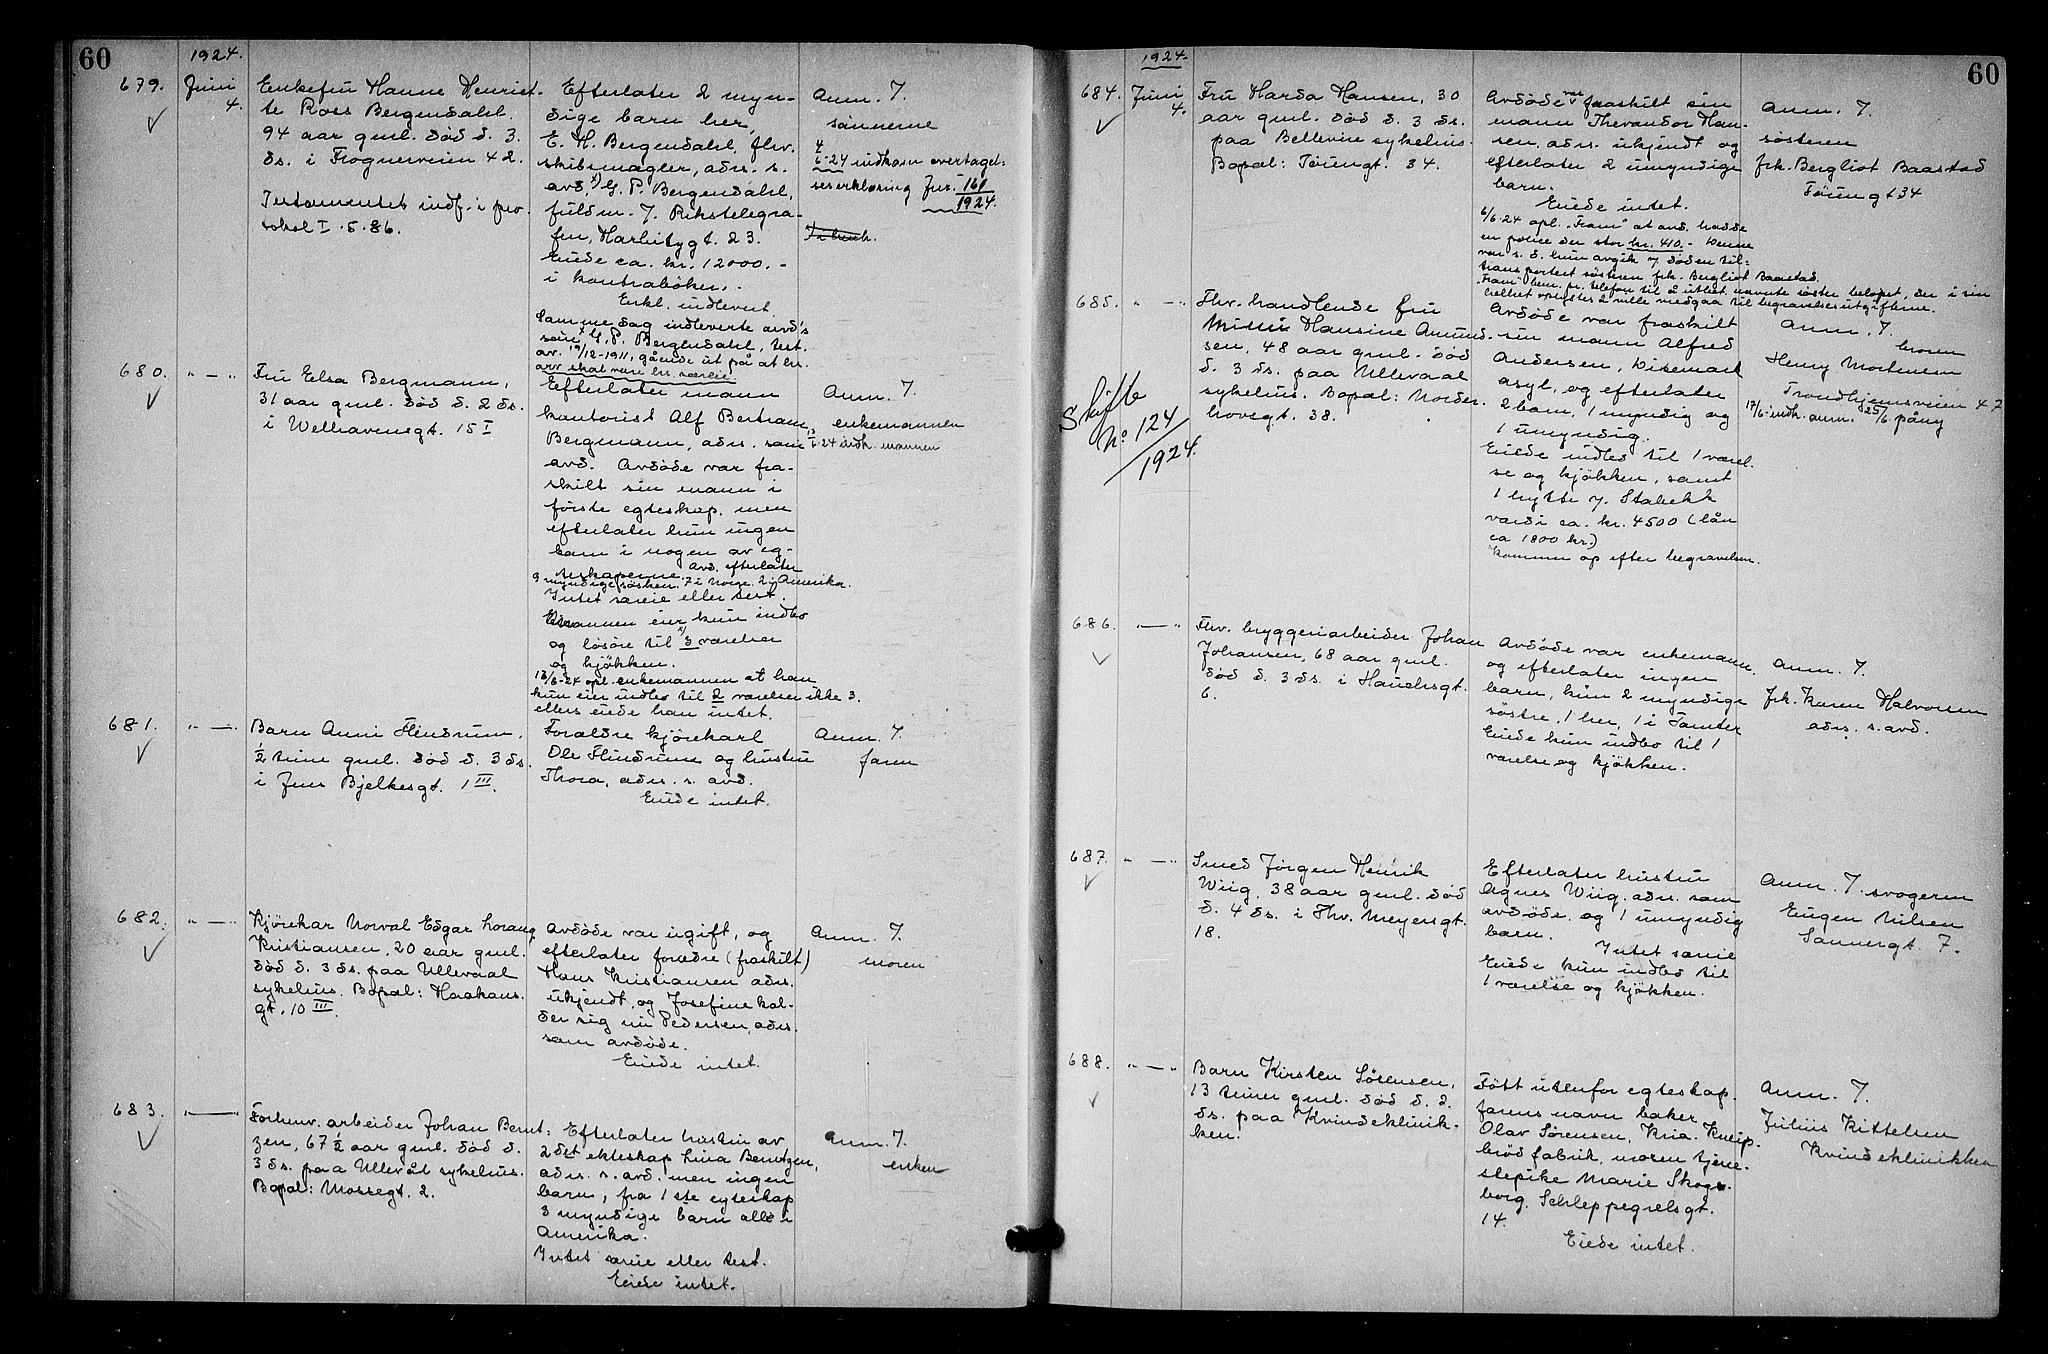 60
1924.
679.
Juni
4.
Enkefru Hanne Henriet-
te Roes Bergendahl.
94 aar gml. död d. 3.
ds. i Frognerveien 42.
Testamentet indf. i pro-
tokol I. S. 86.
Efterlater 2 myn-
dige barn her,
E. H. Bergendahl, fhv.
skibsmægler, adrs. s.
avd, x) G. P. Bergendahl,
fuldm. i Rikstelegra-
fen, Harbitzgt. 23.
Eiede ca. kr. 12000.-
i kontraböker. -
Erkl. indlevert.
Samme dag indleverte avd's
sön G. P. Bergendahl, test.
av. 19/12-1911, gående ut på at hs.
arv skal være hs. særeie
Anm. I.
sönnerne
4
6-24 indkom overtagel-
seserklæring Jnr. 161
1924.
680.
" — "
Fru Elsa Bergmann,
31 aar gml. död d. 2 ds.
i Welhavensgt. 15 I
Efterlater mann
kontorist Alf Bertram
Bergmann, adrs. som
avd. Avdöde var fra-
skilt sin mann i
förste egteskap. men
efterlater hun ingen
barn i nogen av eg-
teskaperne. Avd. efterlater
9 myndige søsken. 7 i Norge. 2 i Amerika.
Intet særeie eller test.
Enkemannen eier kun indbo
og lösöre til x) 3 værelser
og kjøkken.
13/6-24 opl. enkemannen at han
kun eier indbo til 2 værelser ikke 3.
ellers eiede han intet.
Anm. I.
enkemannen
I-24 indk. mannen
681.
" — "
Barn Anni Flindrum,
1/2 time gml. död d. 3 ds.
i Jens Bjelkesgt. 1 III.
Forældre kjörekarl
Ole Flindrum og hustru
Thora, adrs. s. avd.
Eiede intet.
Anm. I.
faren
682.
" — "
Kjörekar Norval Edgar Lorang
Kristiansen, 20 aar gml.
död d. 3 ds. paa Ullevaal
sykehus. Bopæl: Haakons.
gt. 10 III.
Avdöde var ugift, og
efterlater forældre (fraskilt)
Hans Kristiansen adrs.
ukjendt, og Josefine kal-
der sig nu Pedersen, adrs.
som avdöde.
Eiede intet.
Anm. I.
moren
683.
" — "
Forhenv. arbeider Johan Bernt-
zen, 67 1/2 aar gml. död d.
3 ds. paa Ullevål sykehus.
Bopæl: Mossegt. 2.
Efterlater hustru av
2 det ekteskap Lina Berntzen,
adrs. s. avd. men ingen
barn, fra 1 ste egteskap
3 myndige barn alle i
Amerika.
Intet særeie eller test.
Eiede intet.
Anm. I.
enken
60
1924.
684.
Juni
4.
Fru Harda Hansen, 30
aar gml. död d. 3 ds.
paa Bellevue sykehus.
Bopæl: Töiengt. 34.
Avdöde var fraskilt sin
mann Thevandor Han-
sen, adrs. ukjendt og
efterlater 2 umyndige
barn.
Eiede intet.
6/6-24 opl. "Fram" at avd. hadde
en police der stor kr. 410.- Denne
var s. d. hun avgik v. döden til-
transportert søsteren frk. Bergliot Baastad.
"Fram" bem. pr. telefon til å utbet. nævnte søster belöpet, der i sin
helhet oplystes å ville medgaa til begravelsesutgifterne.
Anm. I.
søsteren
frk. Bergliot Baastad
Töiengt 34
685.
" — "
Fhv. handlende fru
Milli Hansine Amund-
sen, 48 aar gml. död
d. 3 ds. paa Ullevaal
sykehus. Bopæl: Norder-
hovsgt. 38.
Skifte
No 124
1924.
Avdöde var fraskilt
sin mann Alfred
Andersen, Dikemark
asyl, og efterlater
2 barn, 1 myndig og
1 umyndig.
Eiede indbo til 1 værel.
se og kjökken, samt
1 hytte v. Stabekk
værdi ca. kr. 4500 (lån
ca 1800 kr.)
Kommer op efter begravelsen.
Anm. I
broren
Henry Mortensen
Trondhjemsveien 47
17/6 indk. anm. 25/6 påny
686.
" — "
Fhv. bryggeriarbeider Johan
Johansen, 68 aar gml.
död d. 3 ds. i Hauchsgt.
6.
Avdöde var enkemann.
og efterlater ingen
barn, kun 2 myndige
søstre, 1 her, 1 i Jamter
Eiede kun indbo til 1
værelse og kjökken.
Anm. I.
frk. Karen Halvorsen
adrs. s. avd.
687.
" — "
Smed Jörgen Henrik
Wiig. 38 aar gml. död
d. 4 ds. i Thv. Meyersgt.
18.
Efterlater hustru
Agnes Wiig, adrs. som
avdöde, og 1 umyndig
barn.
Intet særeie
Eiede kun indbo til
1 værelse og kjökken.
Anm. I. svogeren
Eugen Nilsen
Sannergt. 7.
688.
" — "
Barn Kirsten Sörensen,
13 timer gml. död d. 2.
ds. paa Kvindeklinik-
ken.
Född utenfor egteskap.
farens navn baker
Olav Sörensen, Kria. Kneip-
bröd fabrik, moren tjene-
stepike Marie Skogs-
borg. Schleppegrelsgt.
14.
Eiede intet.
Anm. I.
Julius Kittelsen
Kvindeklinikken